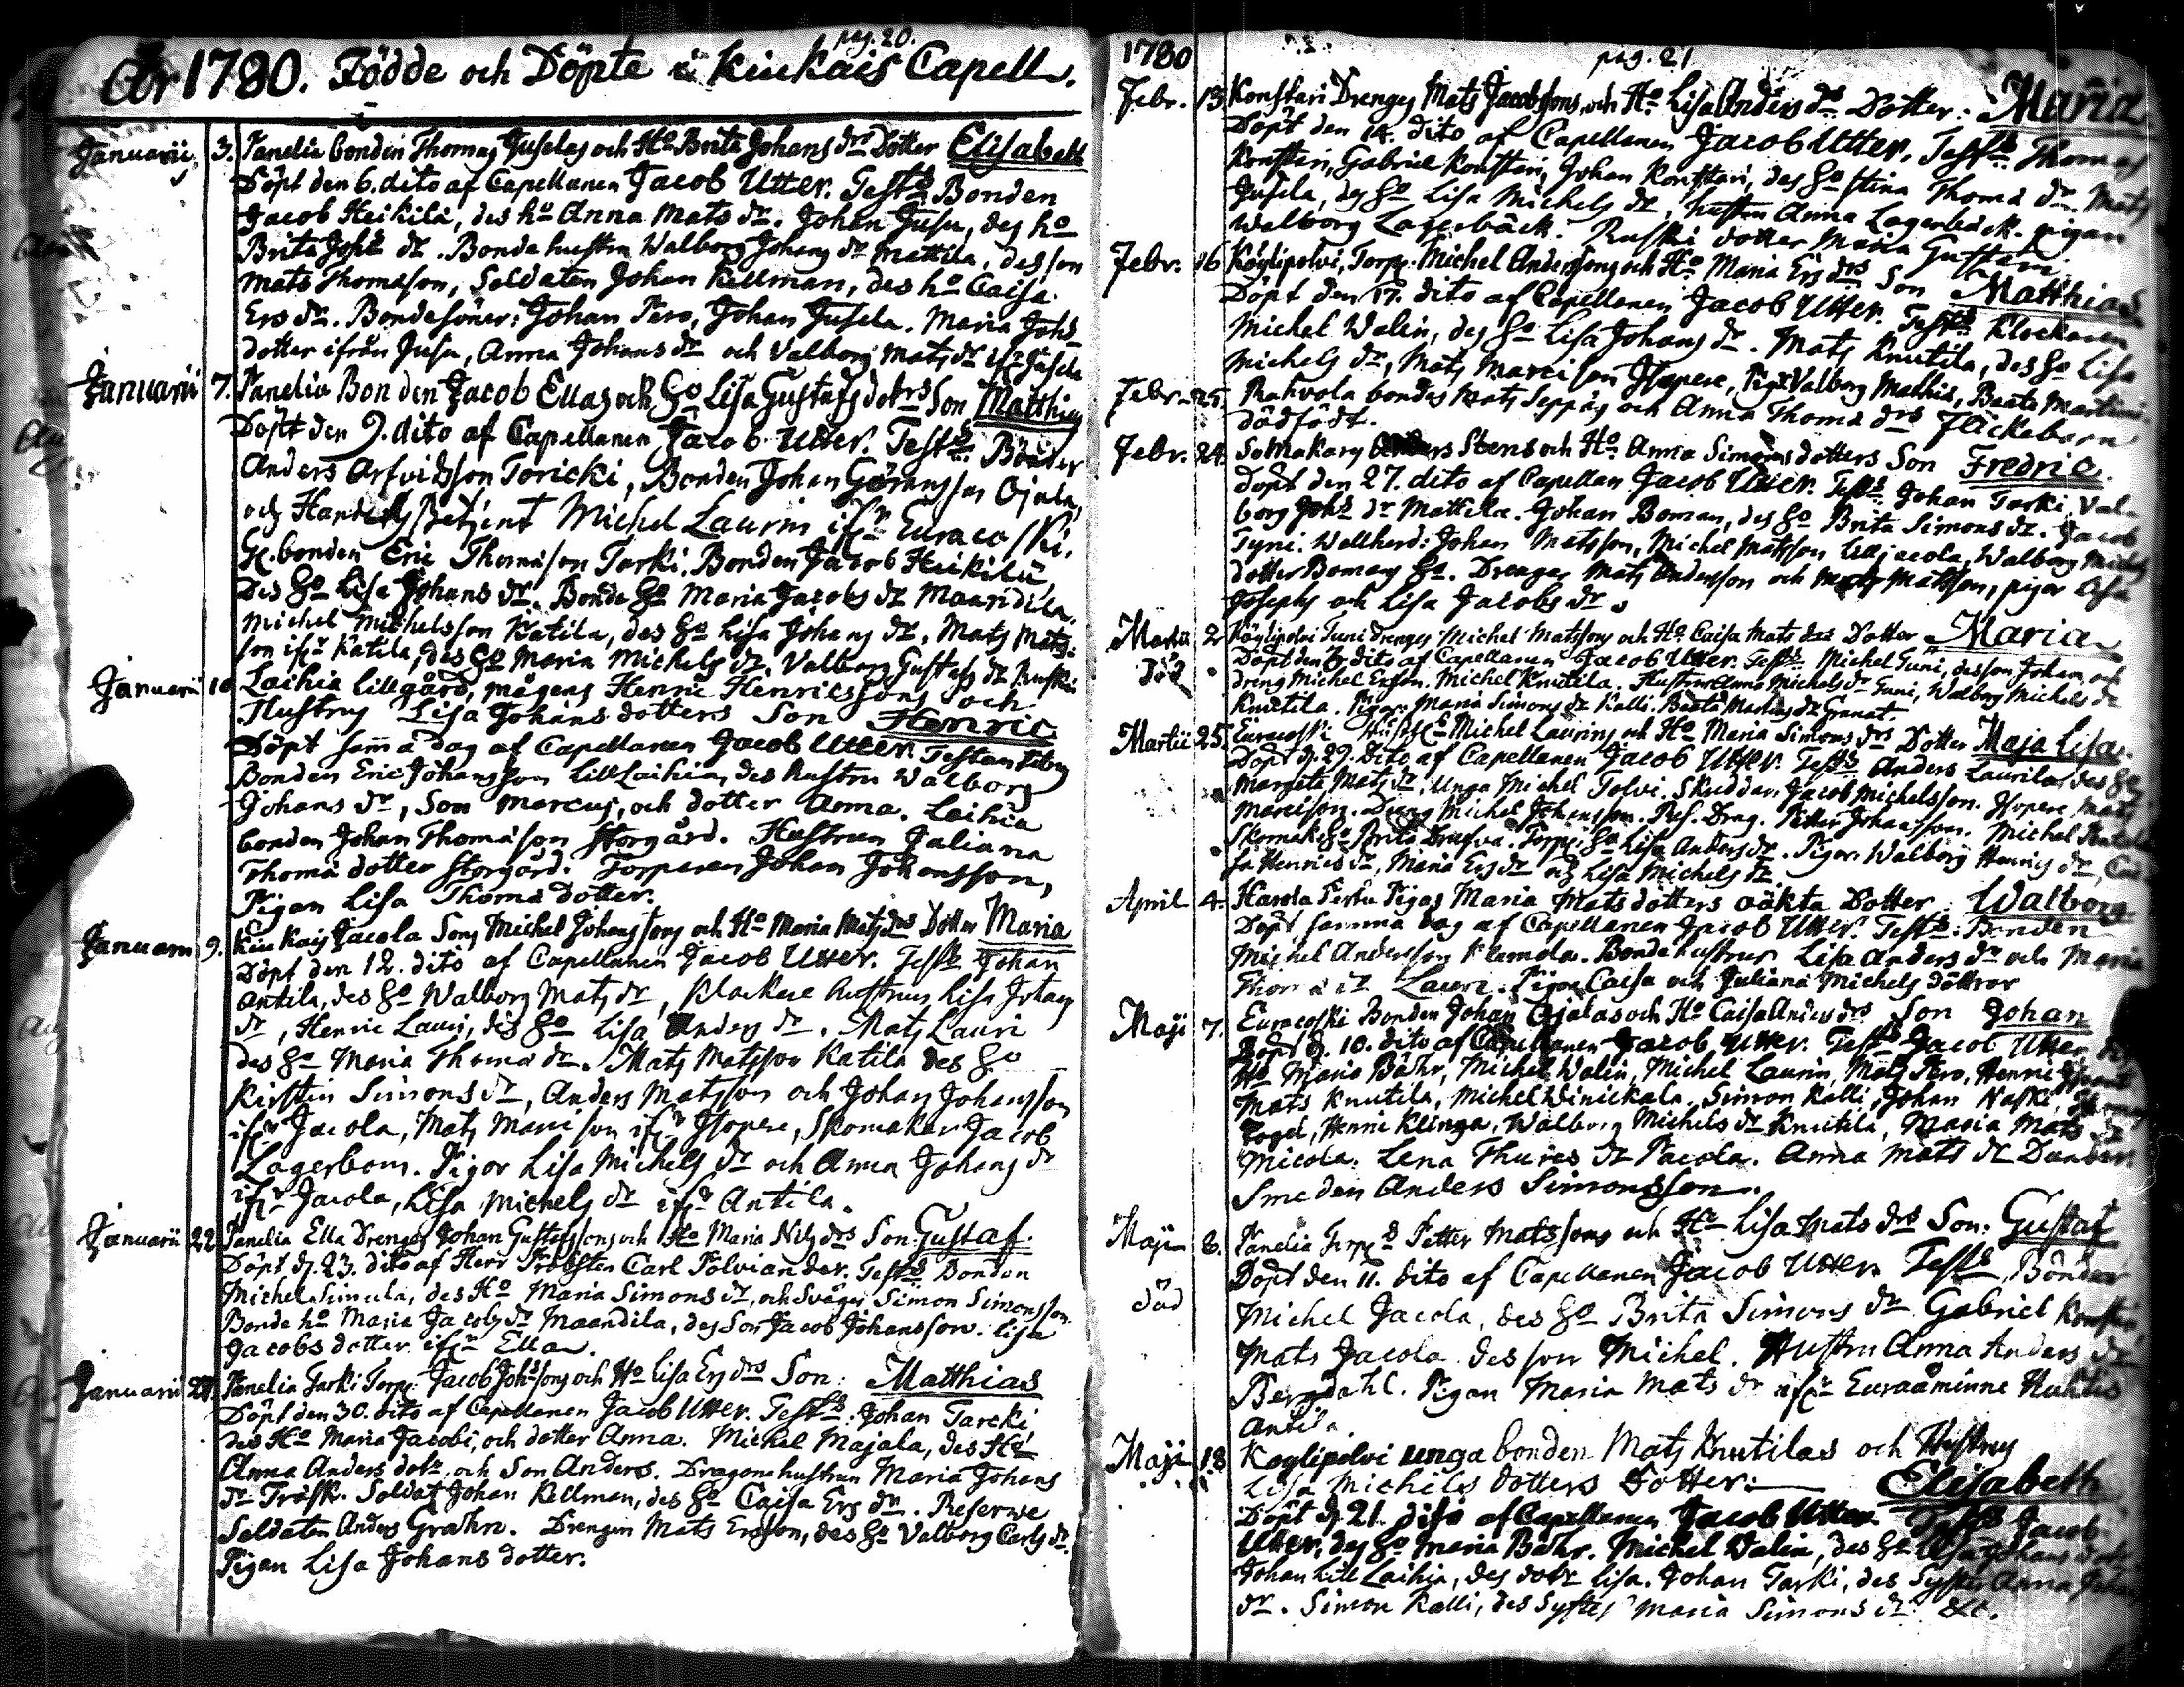 pag. 20.
År 1780. Födde och Döpte i Kiukais Capell.
Januarii 3. Panelia bonden Thomas Juselas och Ho Brita Johans drs Dotter Elisabeth
Döpt den 6. dito af Capellanen Jacob Utter. Tests Bonden
Jacob Heikilä, des ho Anna Mats dr. Johan Jusu, des ho
Brita Johs dr. Bonde hustrun Walborg Johans dr Mattila, des son
Mats Thomasson, Soldaten Johan Kellman, des ho Caisa
Ers dr. Bondesöner: Johan Pero, Johan Jusela. Maria Johs
dotter ifrån Jusu, Anna Johans dr och Valborg Mats dr ifr Jusela
Januarii 7. Panelia Bonden Jacob Ellas och Ho Lisa Gustafs dotrs Son Matthias
Döpt den 9. dito af Capellanen Jacob Utter. Tests: Bönder
Anders Arfvidsson Toricki, Bonden Johan Göransson Ojala,
och Handels Betjent Michel Laurin ifrn Euracoski.
Gl. bonden Eric Thomasson Tarki. Bonden Jacob Heikilä,
Des Ho Lisa Johans dr. Bonde Ho Maria Jacobs dr Maandila.
Michel Michelsson Katila, des Ho Lisa Johans dr, Mats Mats-
son ifr Katila, des Ho Maria Michels dr. Valborg Gustafs dr Ruski
Januarii 10 Laihia Lillgård, mågens Henric Henricssons och
Hustrus Lisa Johans dotters Son Henric
Döpt samma dag af Capellanen Jacob Utter. Testantibus
Bonden Eric Johansson Lill Laihia, des hustru Walborg
Johans dr, Son Marcus, och dotter Anna. Laihia
bonden Johan Thomasson Storgård. Hustrun Juliana
Thomä dotter Storgård. Torparen Johan Johansson,
Pigan Lisa Thomä dotter.
Januarii 9. Kiukais Jacola Sons Michel Johanssons och Ho Maria Mats drs Dotter Maria
Döpt den 12. dito af Capellanen Jacob Utter. Tests Johan
Antila, des Ho Walborg Mats dr, Klockare hustrun Lisa Johans
dr, Henric Lauri, des Ho Lisa Anders dr. Mats Lauri
des Ho Maria Thomä dr. Mats Matsson Katila des Ho
Kirstin Simons dr, Anders Matsson och Johan Johansson
ifr Jacola, Mats Marcisson ifr Isopere, Skomakar Jacob
Lagerbom. Pigor Lisa Michels dr och Anna Johans dr
ifr Jacola, Lisa Michels dr ifr Antila.
Januarii 22 Panelia Ella Drengs Johan Gustafssons och Ho Maria Nils drs Son: Gustaf.
Döpt d. 23. dito af Herr Probsten Carl Polviander. Tests: Bonden
Michel Simula, des Ho Maria Simons dr, och Svåger Simon Simonsson
Bonde ho Maria Jacobs dr Maandila, des Son Jacob Johansson. Lisa
Jacobs dotter ifrn Ella.
Januarii 27. Panelia Tarki Torp: Jacob Johssons och Ho Lisa Ers drs Son: Matthias
Döpt den 30. dito af Capellanen Jacob Utter. Tests: Johan Tarcki
des Ho Maria Jacobs, och dotter Anna. Michel Majala, des Ho
Anna Anders dotr, och Son Anders. Dragone hustrun Maria Johans
dr Träsk. Soldat Johan Kellman, des Ho Caisa Ers dr. Reserve
Soldaten Anders Grahn. Drengen Mats Ersson, des Ho Valborg Carls dr.
Pigan Lisa Johans dotter.
1780 pag. 21
Febr. 13. Konstari Drengs Mats Jacobssons och Ho Lisa Anders drs Dotter: Maria
Döpt den 14. dito af Capellanen Jacob Utter. Tests: Thomas
Konstari, Gabriel Konstari, Johan Konstari, des Ho Stina Thomä dr. Mats
Jusela, des Ho Lisa Michels dr, hustru Anna Lagerbäck. pigan
Walborg Lagerbäck. Ruski dotter Maria Gustafs
Febr. 16 Köylipolvi, Torp: Michel Anderssons och Ho Maria Ers drs Son Matthias
Döpt den 17. dito af Capellanen Jacob Utter. Tests Klockaren
Michel Walin, des Ho Lisa Johans dr. Mats Knutila, des Ho Lisa
Michels dr, Mats Marcisson Isopere, Pigr Valborg Mathis, Beata Martini
Febr. 25. Rahvola bondes Mats Seppäs och Anna Thomä drs Flickebarn
dödfödt.
Febr. 24. Somakars Stens och Ho Anna Simons dotters Son Fredric.
Döpt den 27. dito af Capellan Jacob Utter. Tests: Johan Tarki, Val-
borg Johs dr Mattila. Johan Boman, des Ho Brita Simons dr. Jacob
Tyni. Wallherd: Johan Matsson, Michel Matsson Lilljacola, Walborg Michels
dotter Bomans Ho. Drengar Mats Andersson och Mats Mattsson, pigor Lisa
Josephs och Lisa Jacobs dr.
Martii 2 Köylipolvi Tuni Drengs Michel Matssons och Ho Caisa Mats drs Dotter Maria
död
Döpt den dito af Capellanen Jacob Utter. Tests: Michel Tuni, des son Johan, och
dreng Michel Ersson. Michel Knutila. Hustrur Anna Michels dr Tuni, Walborg Michels dr
Knutila. Pigor: Maria Simons dr Kalli. Beata Mathis dr Granat.
Martii 25. Euracoski Michel Laurins och Ho Maria Simons drs Dotter Maja Lisa.
Döpt d. 29. dito af Capellanen Jacob Utter. Tests Anders Laurila, des Ho
Margeta Mats dr, Unga Michel Polvi. Skräddar: Jacob Michelsson. Isopere Mats
Marcisson. Dreng Michel Johansson. Res. Drag. Petter Johansson. Michel
Skomak Ho Brita Torp: Ho Lisa Anders dr. Pigor: Walborg Henrics dr, Cai-
sa Henrics dr, Maria Ers dr och Lisa Michels dr
April 4. Harola Perhu Pigas Maria Mats dotters oäkta Dotter: Walborg
Döpt samma dag af Capellanen Jacob Utter. Tests: Bonden
Michel Andersson Klemola. Bonde hustrur Lisa Anders dr och Maria
Thomä dr Lauri. Pigor Caisa och Juliana Michels döttror
Maji 7. Euracoski Bonden Johan Ojalas och Ho Caisa Anders drs Son Johan
Döpt d. 10. dito af Capellanen Jacob Utter. Tests Jacob Utter
Ho Maria Bähr, Michel Walin, Michel Laurin, Mats Pero, Henric
Mats Knutila, Michel Winickala. Simon Kalli, Johan Naski, Thomas
Fogel, Henric Klinga, Walborg Michels dr Knutila, Maria Mats dr
Micola. Lena Thures dr Pacola. Anna Mats dr Dunder.
Smeden Anders Simonsson.
Maji 8. Panelia Torps Petter Matssons och Ho Lisa Mats drs Son: Gustaf
död
Döpt den 11. dito af Capellanen Jacob Utter. Tests Bönder
Michel Jacola, des Ho Brita Simons dr Gabriel Konstari,
Mats Jacola des son Michel. Hustru Anna Anders dr
Bergdahl. Pigan Maria Mats dr ifr Euraåminne Huhtis
Antila.
Maji 18 Köylipolvi unga bonden Mats Knutilas och Hustrus
Lisa Michels dotters Dotter: Elisabeth
Döpt d. 21. dito af Capellanen Jacob Utter. Tests Jacob
Utter, des Ho Maria Bähr. Michel Walin, des Ho Lisa Johans dotr
Johan Lill Laihia, des dotr Lisa. Johan Tarki, des Syster Anna Johans
dr. Simon Kalli, des Syster Maria Simons dr &c.